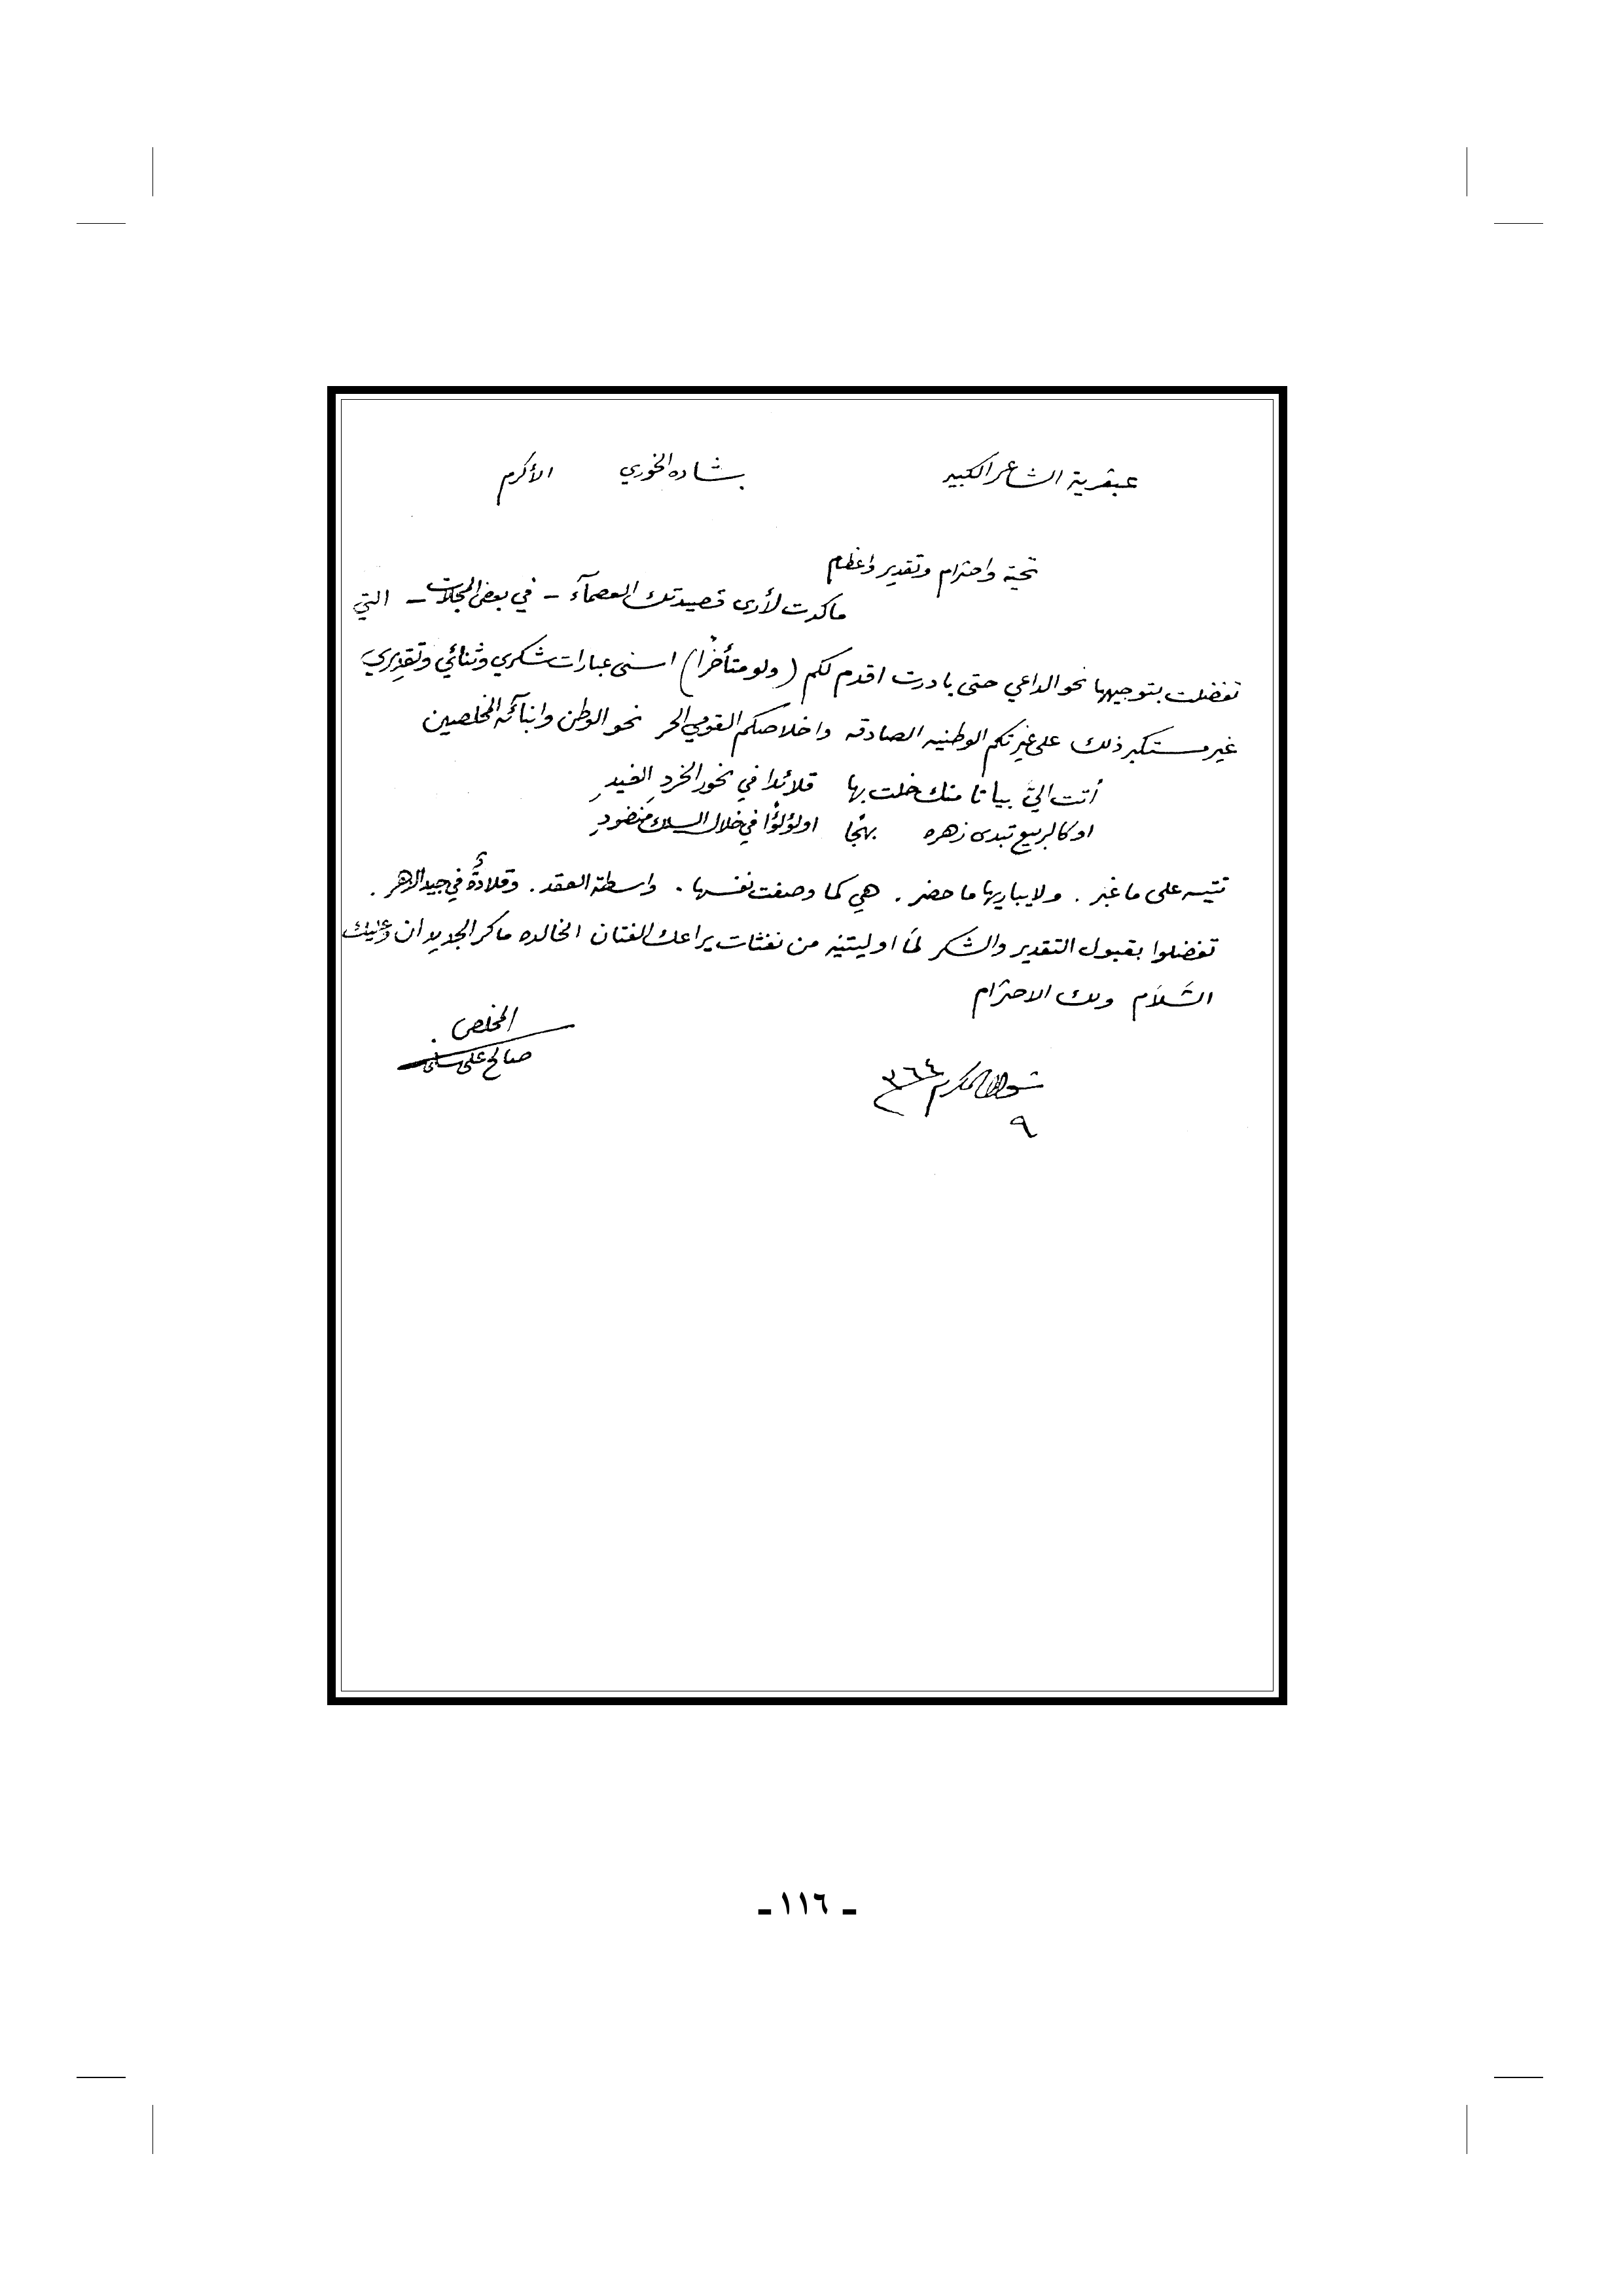 عبقرية الشاعر الكبير بشاره الخوري الأكرم
تحية واحترام وتقدير واعظام
ما كدت لأرى قصيدتك العصمآء - في بعض المجلات - التي
تفضلت بتوجيهها نحو الداعي حتى بادرت اقدم لكم (ولو متأخرا) اسنى عبارات شكري وثنائي وتقديري
غير مستكبر ذلك على غيرتكم الوطنيه الصادقه واخلاصكم القومي الحر نحو الوطن وابنآئه المخلصين
أتت اليّ بياتا منك خلت بها قلائدا في نحور الخردِ الغيدِ
او كالربيع تبدى زهره بهجًا او لؤلؤًا في خلال السلك منضودِ
تتيه على ما غبر . ولا يباريها ما حضر . هي كما وصفت نفسها . واسطة العقد . وقلادةٌ في جيد الدهر .
تفضلوا بقبول التقدير والشكر لمَا اوليتنيه من نفثات يراعك الفتان الخالده ما كر الجديدان وعليك
السَّلاَم ولك الاحترام
المخلص
صالح علي
شوال المكرم ٣٦٤
٩
ـ ١١٦ ـ